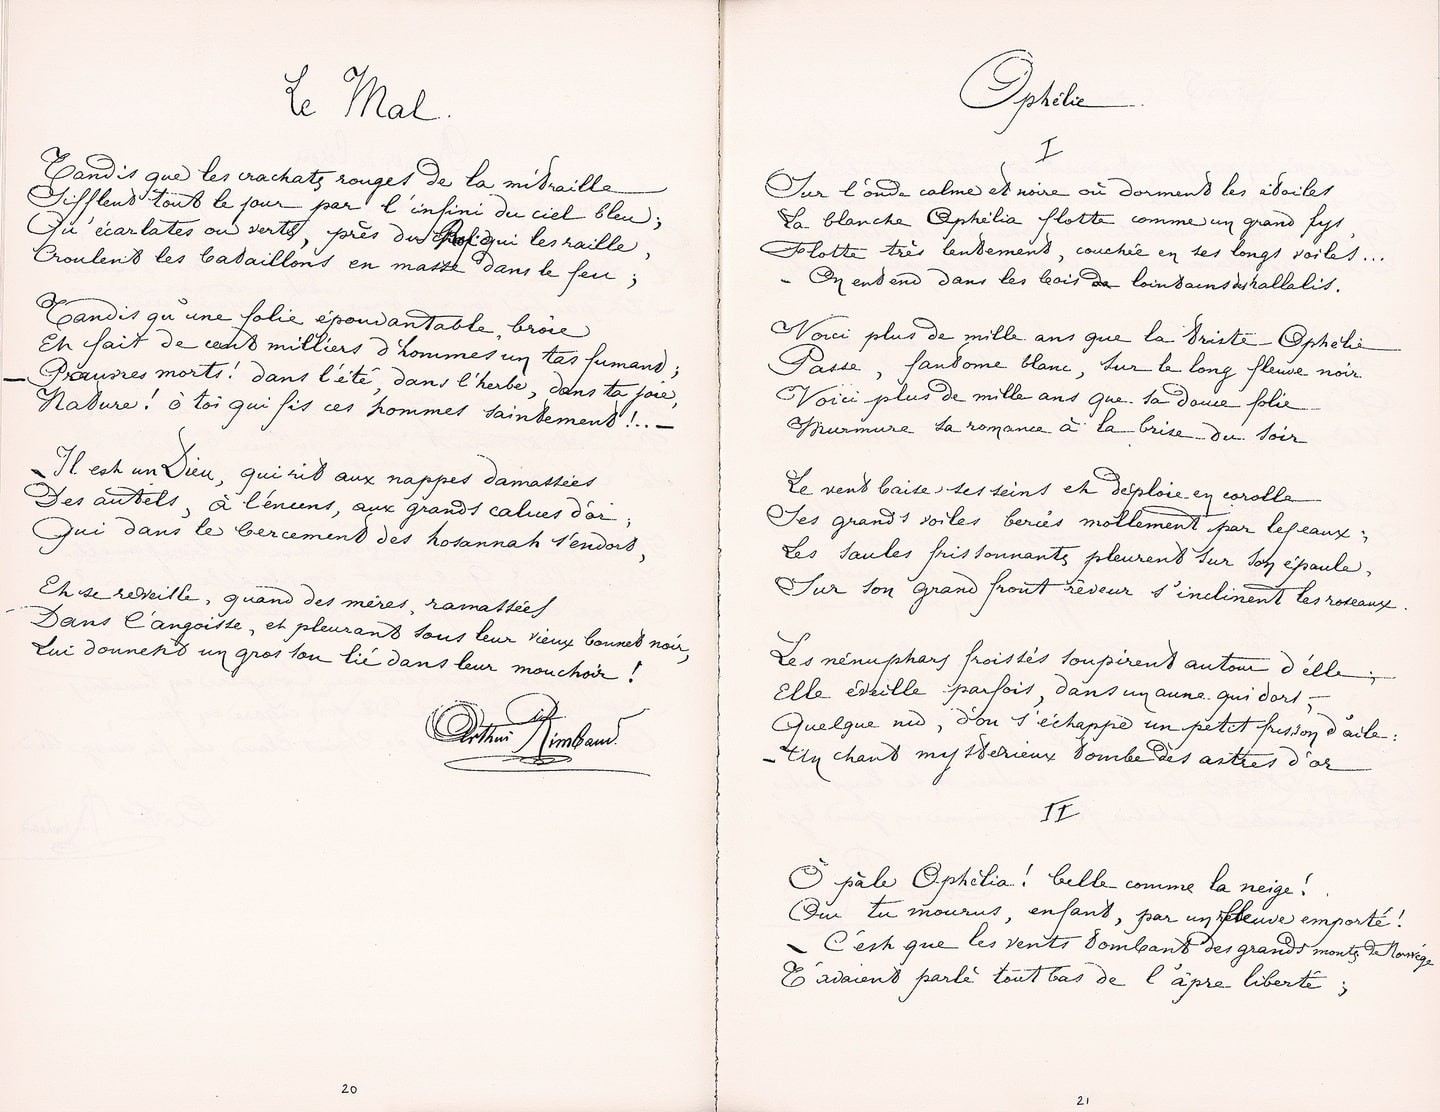 Le Mal.
Tandis que les crachats rouges de la mitraille
Sifflent tout le jour par l'infini du ciel bleu ;
Qu'écarlates ou verts, près du qui les raille,
Croulent les bataillons en masse dans le feu ;
Tandis qu'une folie épouvantable, broie
Et fait de cent milliers d'hommes un tas fumant ;
— Pauvres morts ! dans l'été, dans l'herbe, dans ta joie,
Nature ! ô toi qui fis ces hommes saintement !.. —
— Il est un Dieu, qui rit aux nappes damassées
Des autels, à l'encens, aux grands calices d'or ;
Qui dans le bercement des hosannah s'endort,
Et se réveille, quand des mères, ramassées
Dans l'angoisse, et pleurant sous leur vieux bonnet noir,
Lui donnent un gros sou lié dans leur mouchoir !
Arthur Rimbaud.
20
Ophélie
I
Sur l'onde calme et noire où dorment les étoiles
La blanche Ophélia flotte comme un grand lys,
Flotte très lentement, couchée en ses longs voiles...
— On entend dans les bois lointains des hallalis.
Voici plus de mille ans que la triste Ophélie
Passe, fantome blanc, sur le long fleuve noir
Voici plus de mille ans que sa douce folie
Murmure sa romance à la brise du soir
Le vent baise ses seins et déploie en corolle
Ses grands voiles bercés mollement par les eaux ;
Les saules frissonnants pleurent sur son épaule,
Sur son grand front rêveur s'inclinent les roseaux.
Les nénuphars froissés soupirent autour d'elle ;
Elle éveille parfois, dans un aune qui dort,
Quelque nid, d'où s'échappe un petit frisson d'aile :
— Un chant mystérieux tombe des astres d'or
II
Ô pâle Ophélia ! belle comme la neige !
Oui tu mourus, enfant, par un fleuve emporté !
— C'est que les vents tombant des grands monts de Norwège
T'avaient parlé tout bas de l'âpre liberté ;
21